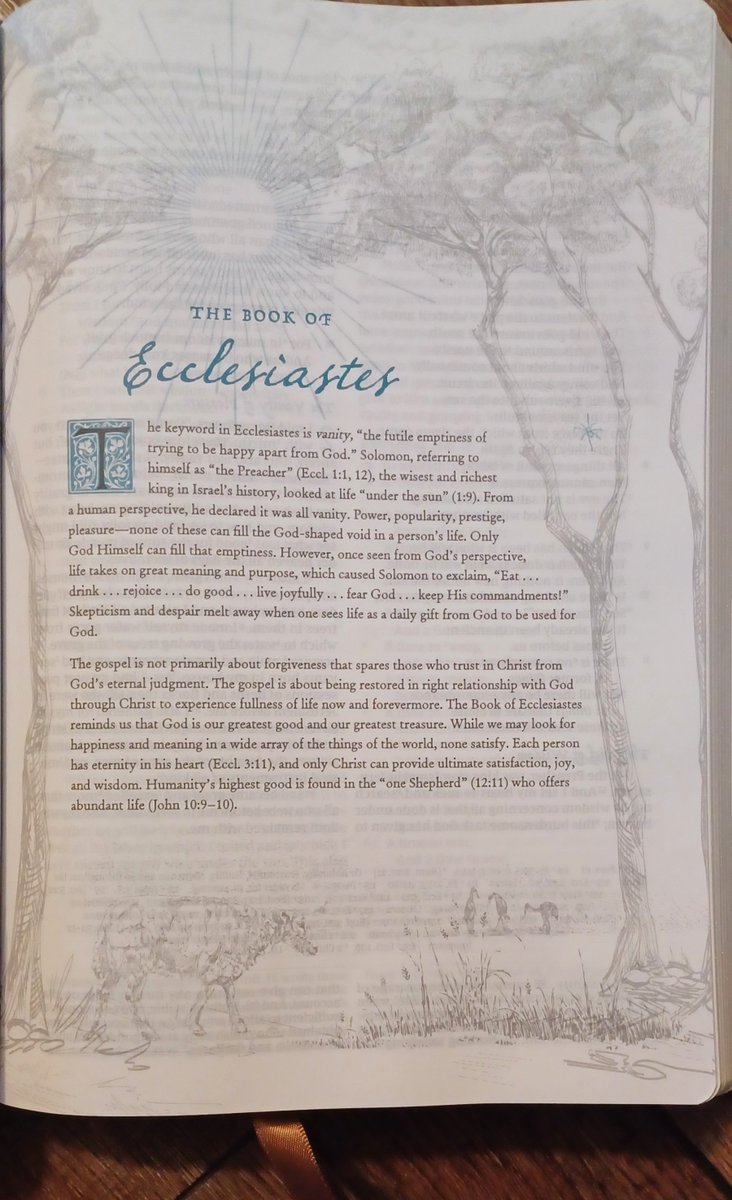 THE BOOK OF
Ecclesiastes
The keyword in Ecclesiastes is vanity, “the futile emptiness of
trying to be happy apart from God.” Solomon, referring to
himself as “the Preacher” (Eccl. 1:1, 12), the wisest and richest
king in Israel’s history, looked at life “under the sun” (1:9). From
a human perspective, he declared it was all vanity. Power, popularity, prestige,
pleasure—none of these can fill the God-shaped void in a person’s life. Only
God Himself can fill that emptiness. However, once seen from God’s perspective,
life takes on great meaning and purpose, which caused Solomon to exclaim, “Eat . . .
drink . . . rejoice . . . do good . . . live joyfully . . . fear God . . . keep His commandments!”
Skepticism and despair melt away when one sees life as a daily gift from God to be used for
God.
The gospel is not primarily about forgiveness that spares those who trust in Christ from
God’s eternal judgment. The gospel is about being restored in right relationship with God
through Christ to experience fullness of life now and forevermore. The Book of Ecclesiastes
reminds us that God is our greatest good and our greatest treasure. While we may look for
happiness and meaning in a wide array of the things of the world, none satisfy. Each person
has eternity in his heart (Eccl. 3:11), and only Christ can provide ultimate satisfaction, joy,
and wisdom. Humanity’s highest good is found in the “one Shepherd” (12:11) who offers
abundant life (John 10:9–10).